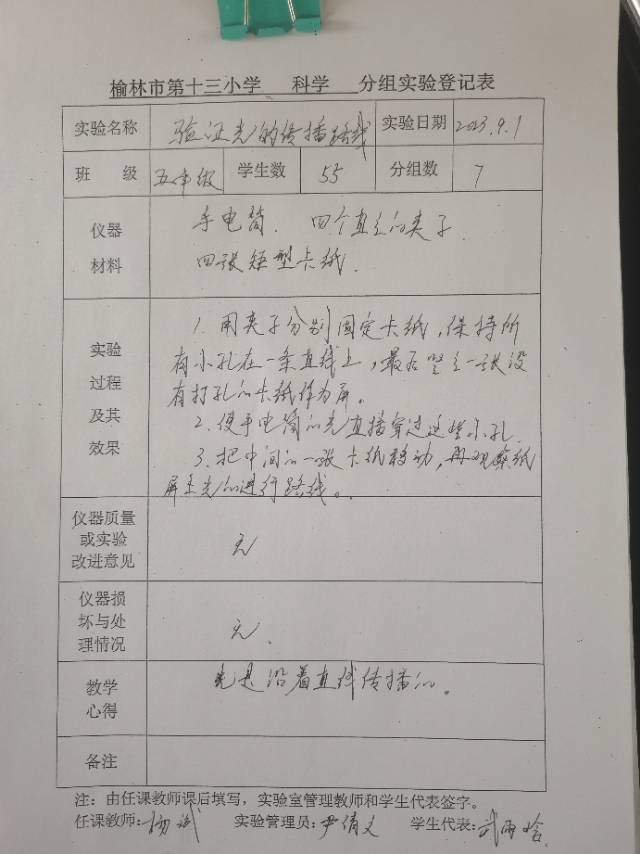 榆林市第十三小学 科学 分组实验登记表
实验名称 验证光的传播路线 实验日期 2023.9.1
班 级 五年级 学生数 55 分组数 7
仪器
材料
手电筒. 四个直立的夹子.
四张矩型卡纸.
实验
过程
及其
效果
1. 用夹子分别固定卡纸,保持所
有小孔在一条直线上,最后竖立一张没
有打孔的卡纸作为屏。
2. 使手电筒的光直接穿过这些小孔.
3. 把中间的一张卡纸移动,再观察纸
屏上光的进行路线。
仪器质量
或实验
改进意见
无
仪器损
坏与处
理情况
无.
教学
心得
光是沿着直线传播的。
备注
注:由任课教师课后填写,实验室管理教师和学生代表签字。
任课教师: 杨 实验管理员: 尹倩文 学生代表: 武雨